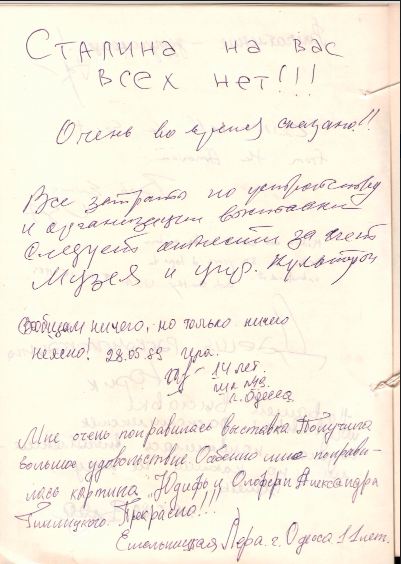 Сталина на вас
всех нет!!!
Очень во время сказано!!
Все затраты по устройству
и организации выставки
следует отнести за счет
Музея и упр. Культуры
Вообщем ничего, но только ничего
неясно! 28.05.89 Ира.
14 лет.
г. Одесса
Мне очень понравилась выставка. Получила
большое удовольствие. Особенно мне понрави-
лась картина „Юдифь и Олоферн Александра
Прекрасно!!...
Лера. г. Одесса 11 лет.